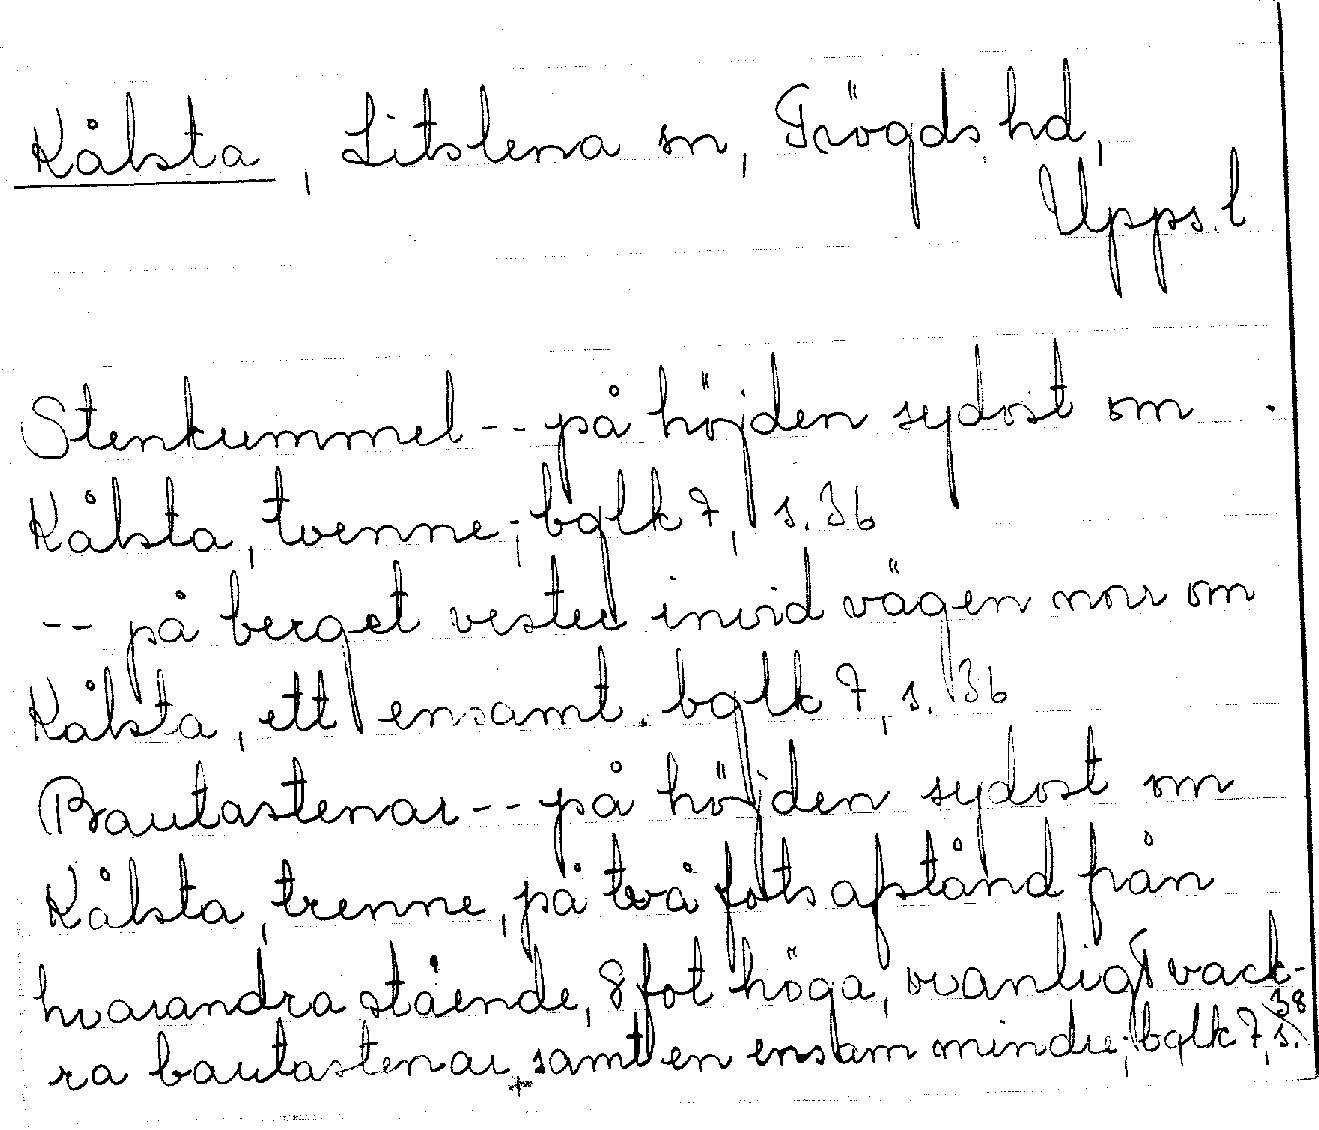 Kålsta, Litslena sn, Trögds hd,
Upps. l
Stenkummel -- på höjden sydost om
Kålsta, tvenne; bglk 7, s. 36
-- på berget vester invid vägen norr om
Kålsta, ett ensamt. bglk 7, s. 36
Bautastenar -- på höjden sydost om
Kålsta, trenne, på två fots afstånd från
hvarandra stående, 8 fot höga, ovanligt vack-
ra bautastenar, samt en ensam mindre; bglk 7, s. 38